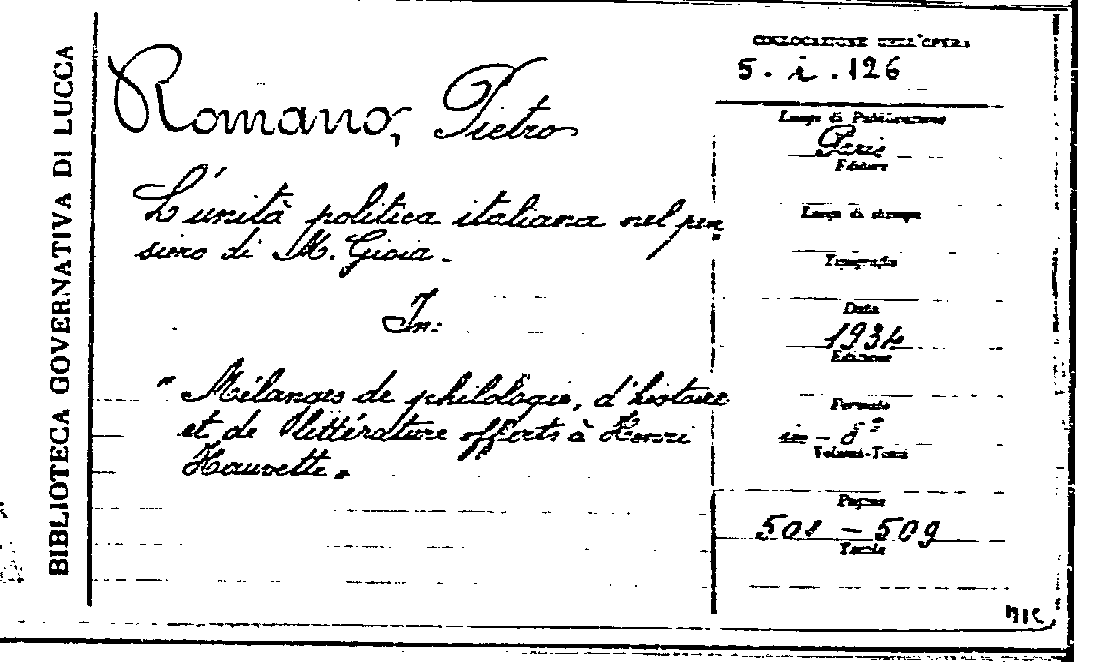 BIBLIOTECA GOVERNATIVA DI LUCCA
Romano, Pietro
L'unità politica italiana nel pen
siero di M. Gioia.
In:
" Mélanges de philologie, d'histoire
et de littérature offerts à Henri
Hauvette.
COLLOCAZIONE DELL'OPERA
5. i. 126
Luogo di Pubblicazione
Paris
Editore
Luogo di stampa
Tipografia
Data
1934
Edizione
Formato
in-8º
Volumi-Tomi
Pagine
501 - 509
Tavole
MIC